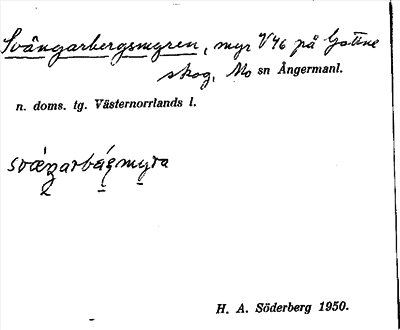 Svångarbergsmyren, myr V46 på Gottne
skog, Mo sn Ångermanl.
n. doms. tg. Västernorrlands l.
svæŋarbág̣myra
H. A. Söderberg 1950.